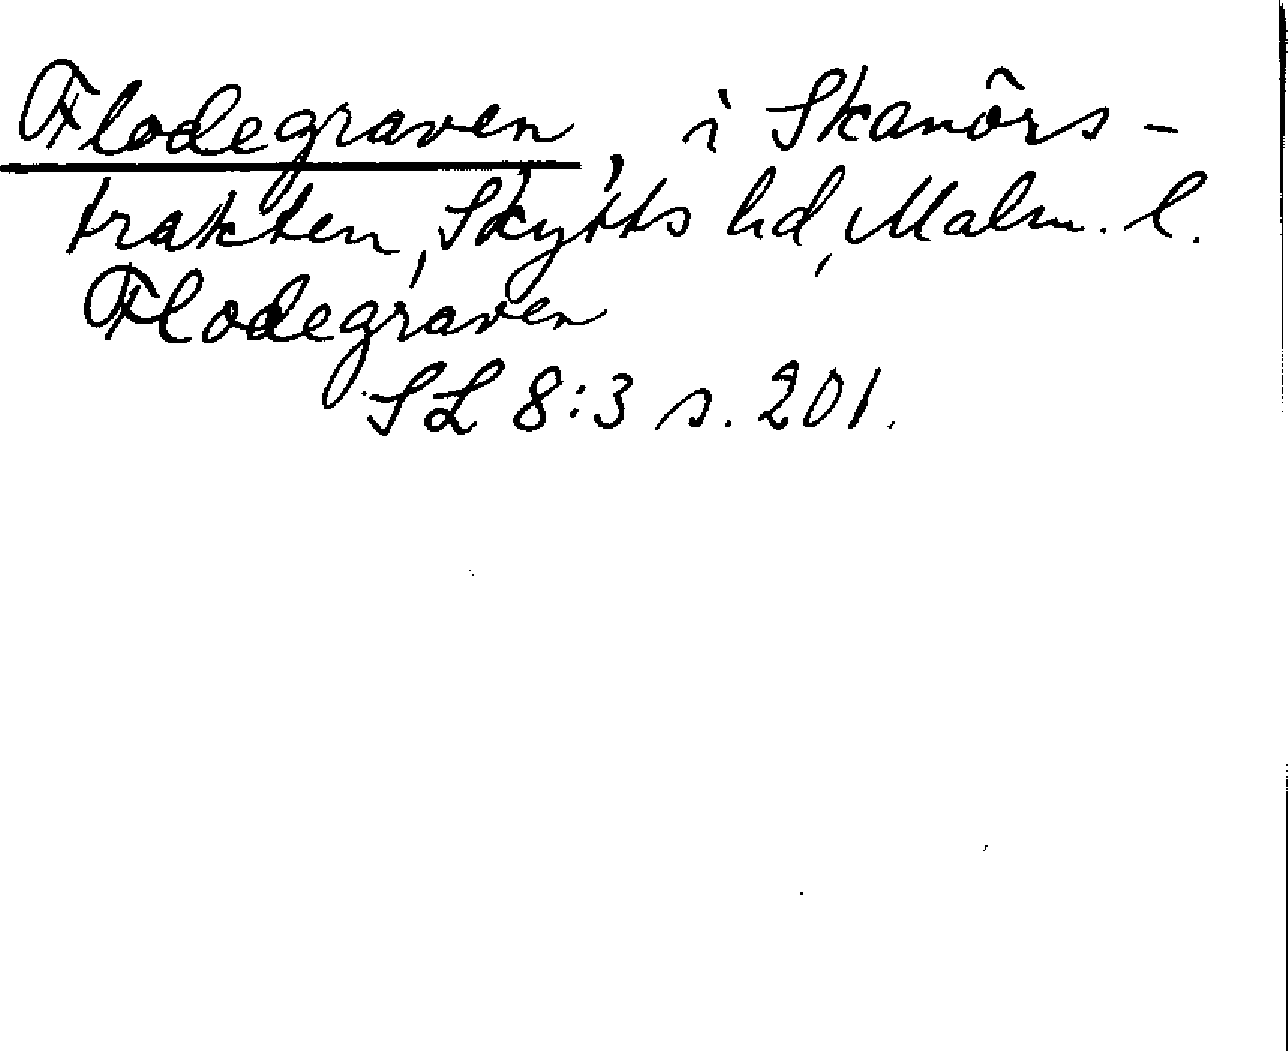 Flodegraven, i Skanörs-
trakten, Skytts hd, Malm. l.
Flodegraven
SL 8:3 s. 201.